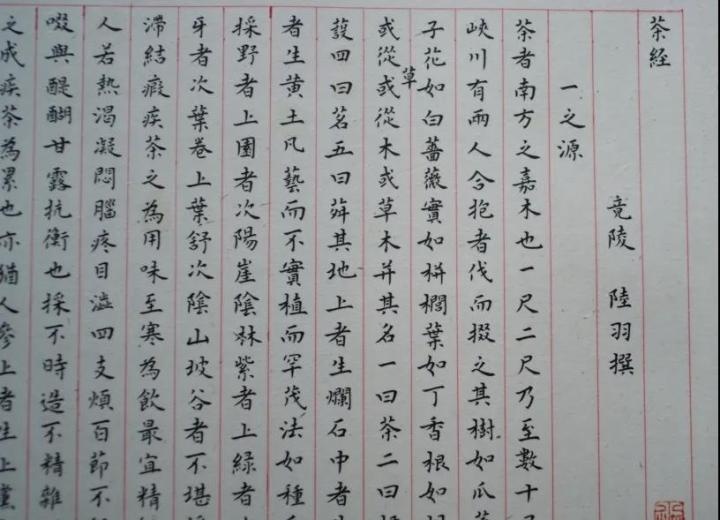 茶経
竟陵 陸羽撰
一之源
茶者南方之嘉木也一尺二尺乃至數十
峽川有兩人合抱者伐而掇之其樹如瓜
子花如白薔薇實如栟櫚葉如丁香根如
或從草或從木或草木并其名一曰茶二曰
蔎四曰茗五曰荈其地上者生爛石中者
者生黄土凡藝而不實植而罕茂法如種
採野者上園者次陽崖陰林紫者上緑者
牙者次葉卷上葉舒次陰山坡谷者不堪
滯結瘕疾茶之為用味至寒為飲最宜精
人若熱渴凝悶腦疼目澁四支煩百節不
啜與醍醐甘露抗衡也採不時造不精雜
之成疾茶為累也亦猶人參上者生上黨